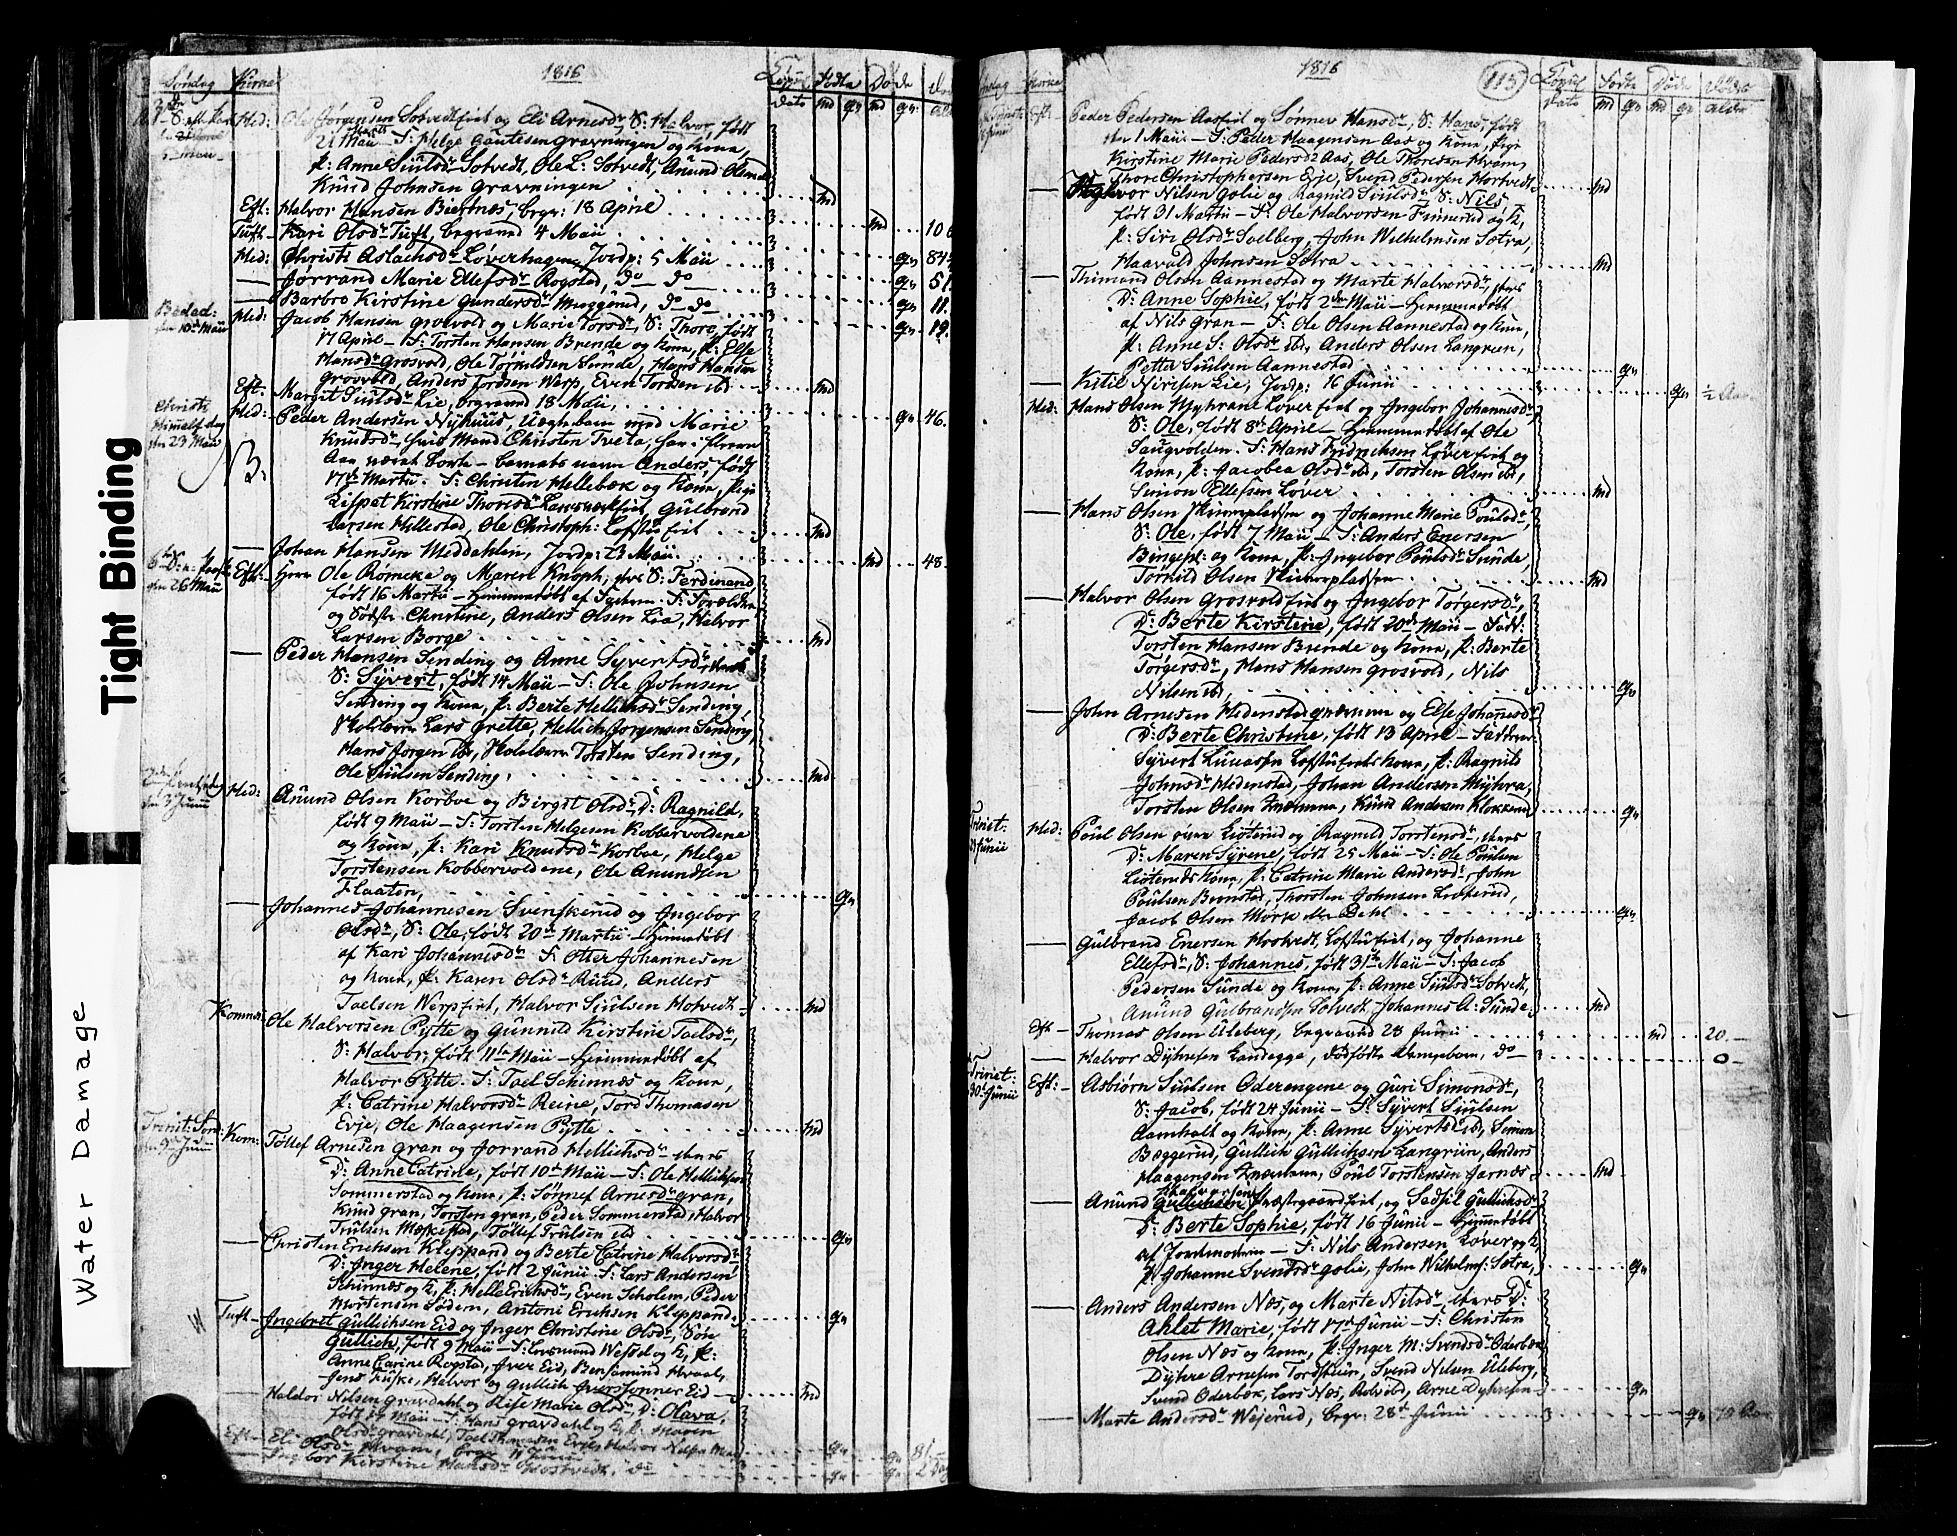 Tight Binding
Water Damage
1816
Søndag Kirne Copul Fødte Døde
dato Md Qv Md Qv
Med: Ole Jørgensen Sotvedtfiet og Eli Arnesdr, S: Halvor, født
21 Maii – F: Helge Gautesen Gravningen og Kona,
p: Anne Siulsdr Sotvedt, Ole L: Sotvedt, Anund
Knud Johnsen Gravningen Md
Eft: Halvor Hansen Biertnæs, begr: 18 April
Tuft – Kari Olsdr Tuft, begraved 4 Maii Md
Med: Christi Aslachsdr Løverhagen, Jordp: 5 Maii Qv 84
Jorrand Marie Ellefsdr Rogstad, do – do Qv 51
Barbro Kirstine Gundersdr Muggerud, do – do Qv 11.
Bededag:
den 10de Maii
Med: Jacob Hansen Grosvold og Marie Torsdr, S: Thoro, født Qv 19.
17 April – F: Torsten Hansen Brende og Kona, p: Else
Hansdr Grosvold, Ole Tørkildsen Sunde, Hans Hansen
Grosvold, Anders Tordsen Werp, Even Tordsen ibd – Md
Eft – Margit Siulsdr Lie, begraved 18 Maii,
Christi
Himmelf. dag
den 23 Maii
Med: Peder Andersen Nyhuus, Uægte barn med Marie Qv 46.
Knudsdr, Christen Tveta,
NB:
Barnets navn Anders, født
17de Martii. F: Christen Mellebæk og Kona, Pige
Lispet Kirstine Thorsdr Gulbrand
Larsen Hillestad, Ole Christoph: Loftstufiet Md
Johan Hansen Meddahlen, Jordp: 23 Maii Md 48
den 26 Maii
Eft: Herr Ole Rømcke og Maren Knoph, S: Ferdinand
født 16 Martii – Hiemmedøbt af F: Forældrene
og Søster Christine, Anders Olsen Lia, Halvor
Larsen Borge Md
Peder Hansen Sending og Anne Syvertsdr
S: Syvert, født 14 Maii – F: Ole Johnsen
Sending og Kona, p: Berte Hellichsdr Sending,
Lars Grette, Hellich Jørgensen Sending,
Hans Jørgen ibd, Torsten Sending,
Ole Siulsen Sending, Md
den 3 Junii
Med: Anund Olsen Korboe og Birgit Olsdr, D: Ragnild,
født 9 Maii – F: Torsten Helgesen Kobbervoldene
og Kona, p: Kari Knudsdr Korboe, Helge
Torstensen Kobbervoldene, Ole Anundsen
Flaaten, Qv
Johannes Johannesen Svenskerud og Ingebor
Olsdr, S: Ole, født 20de Martii – Hiemmedøbt
af Kari Johannesdr F: Otter Johannesen
og Kona, p: Karen Olsdr Ruud, Anders
Taelsen Werpfiet, Halvor Siulsen Hotvedt Md
Komnæs: Ole Halvorsen Pytte og Gunnild Kirstine Taelsdr,
S: Halvor, født 11te Maii – Hiemmedøbt af
Halvor Pytte. F: Tael Schinnæs og Kona,
p: Catrine Halvorsdr Reine, Tord Thomasen
Evje, Ole Haagensen Pytte Md
Trinit: Sønd:
den 9de Junii
Kom: Tollef Arnesen Gran og Jorrand Hellichsdr
D: Anne Catrine, født 10de Maii – F: Ole Hellichsen
Sommerstad og Kona, p: Sønnef Arnesdr Gran,
Knud Gran, Torsten Gran, Peder Sommerstad, Halvor
Trulsen Tollef Trulsen ibd Qv
Christen Erichsen Kleppand og Berte Catrine Halvorsdr,
D: Inger Helene, født 2 Junii. F: Lars Andersen
Schinnæs og K, p: Helle Erichsdr, Even Scholem, Peder
Mortensen Sødern, Antoni Erichsen Kleppand Qv
Tuft – Ingebret Gullichsen Eid og Inger Christine Olsdr, Søn
Gullich, født 9 Maii – F: Wessel og K, p:
Anne Carine Rogstad, Iver Eid, Hvaal,
Jens Fuske, Halvor og Gullich Eid – Md
Haldor Nilsen Gravdahl og Rise Marie Olsdr D: Olava,
født 17 Maii – F: Hans Gravdahl og K, p: Maren
Olsdr Gravdal, Tael Thomasen Evje, Halvor Nilsen Qv
Eft – Eli Olsdr Hvam, begr: 11 Junii Qv 81
Ingebor Kirstine Hansdr Hostvedt, do Qv
1816
115
Søndag Kirne Copul Fødte Døde Døde
dato Md Qv Md Qv Alder
Eft – Peder Pedersen Aasfiet og Sønnev Hansdr, S: Hans, født
den 1 Maii – F: Peder Haagensen Aas og Kona, Pige
Kirstine Marie Pedersdr Aas, Ole Thoresen Hvam,
Thore Christophersen Evje, Svend Pedersen Hortvedt Md
Halvor Nilsen Golie og Ragnild Siulsdr, S: Nils
født 31 Martii – F: Ole Halvorsen Finnerud og K,
p: Siri Olsdr Solberg, John Wilhelmsen Sætra,
Haavald Johnsen Sætra Md
Thimand Olsen Aannestad og Marte Halvorsdr,
D: Anne Sophie, født 2den Maii – Hiemmedøbt
af Nils Gran – F: Ole Olsen Aannestad og Kona,
p: Anne S: Olsdr ibd, Anders Olsen Langrun,
Petter Siulsen Aannestad Qv
Kitil Nirisen Lie, Jordp: 16 Junii Qv ½ Aar
Med: Hans Olsen Myhrane Løverfiet og Ingebor Johannesdr
S: Ole, født 8de April – Hiemmedøbt af Ole
Saugvolden. F: Hans Fridrichsen Løverfiet og
Kona, p: Jacobea Olsdr ibd, Torsten Olsen ibd,
Simon Ellefsen Løver Md
Hans Olsen og Johanne Marie Poulsdr,
S: Ole, født 7 Maii – F: Anders Enersen
Bingepl: og Kona, p: Ingebor Poulsdr Sunde,
Torkild Olsen Md
Halvor Olsen Grosvoldfiet og Ingebor Torgersdr,
D: Berte Kirstine, født 20de Maii – Fadd:
Torsten Hansen Brende og Kona, p: Berte
Torgersdr, Hans Hansen Grosvold, Nils
Nilsen ibd, Qv
John Arnesen Hedenstad og Else Johannesdr
D: Berte Christine, født 13 April – Faddere
Syvert Lucassen Loftstufiets Kona, p: Ragnild
Johnsdr Hedenstad, Johan Andersen Myhra,
Torsten Olsen Knud Andersen Klokkerud Qv
Trinit:
Junii
Med: Poul Olsen Liøterud og Ragnild Torstensdr,
D: Maren Syrene, født 25 Maii – F: Ole Poulsen
Liøteruds Kona, p: Catrine Marie Andersdr, John
Poulsen Brunstad, Thorsten Johnsen Liøterud,
Jacob Olsen Mørk eller Dahl Qv
Gulbrand Enersen Hostvedt, Loftstufiet, og Johanne
Ellefsdr, S: Johannes, født 31te Maii – F: Jacob
Pedersen Sunde og Kona, p: Anne Siulsdr Sotvedt,
Anund Gulbrandsen Sotvedt, Johannes A: Sunde Md
Eft – Thomas Olsen Uleberg, begraved 28 Junii Md 20.
Halvor Dyhresen Landegge, dødfødte do – 0 –
Trinit:
30 Junii
Eft: – Asbiørn Siulsen Oderengene og Guri Simonsdr,
S: Jacob, født 24 Junii – F: Syvert Siulsen
Aamholt og Kona, p: Anne Syvertsdr ibd, Simen
Bæggerud, Gullich Gullichsen Langrun, Anders
Haagensen Poul Torstensen Jarnæs Md
Anund Gullichsen Præstegaardfiet, og Sadsil Gullichsdr
D: Berte Sophie, født 16 Junii – Hiemmedøbt
af Jordmoderen – F: Nils Andersen Løver og K,
p: Johanne Svendsdr Golie, John Wilhelms: Sætra, Qv
Anders Andersen Næs, og Marte Nilsdr, D:
Ahlet Marie, født 17de Junii – F: Christen
Olsen Næs og Kona, p: Inger M: Svendsdr Oderbøk
Dyhre Arnesen Tordstuen, Svend Nilsen Uleberg,
Svend Oderbøk, Lars Næs, Rolv ibd, Arne Dyhresen Qv
Marte Andersdr Wejerud, begr: 28de Junii Qv 70 Aar